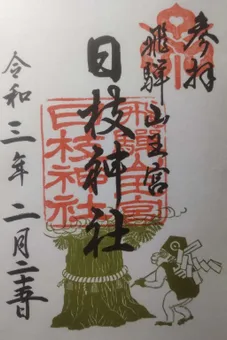 参拝
飛騨山王宮
日枝神社
令和三年二月
飛驒山王宮
日枝神社